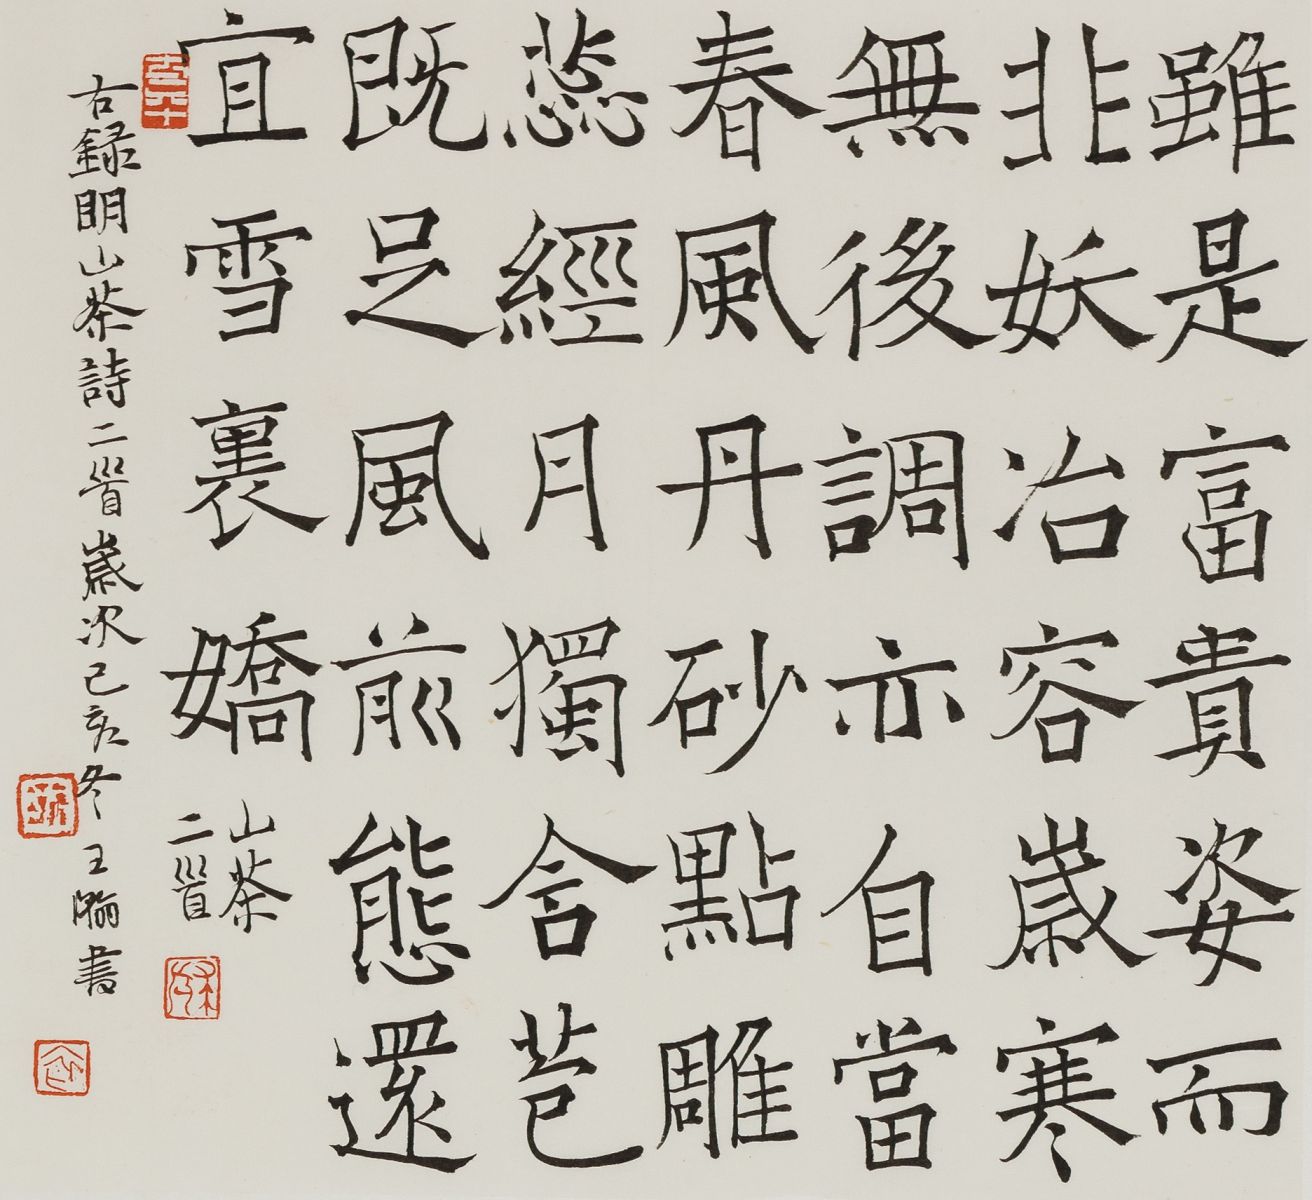 雖是富貴姿而
非妖冶容歲寒
無後調亦自當
春風丹砂點雕
蕊經月獨含苞
既足風前態還
宜雪裏嬌
山茶
二首
右録明山茶詩二首歲次己亥冬王瀚書